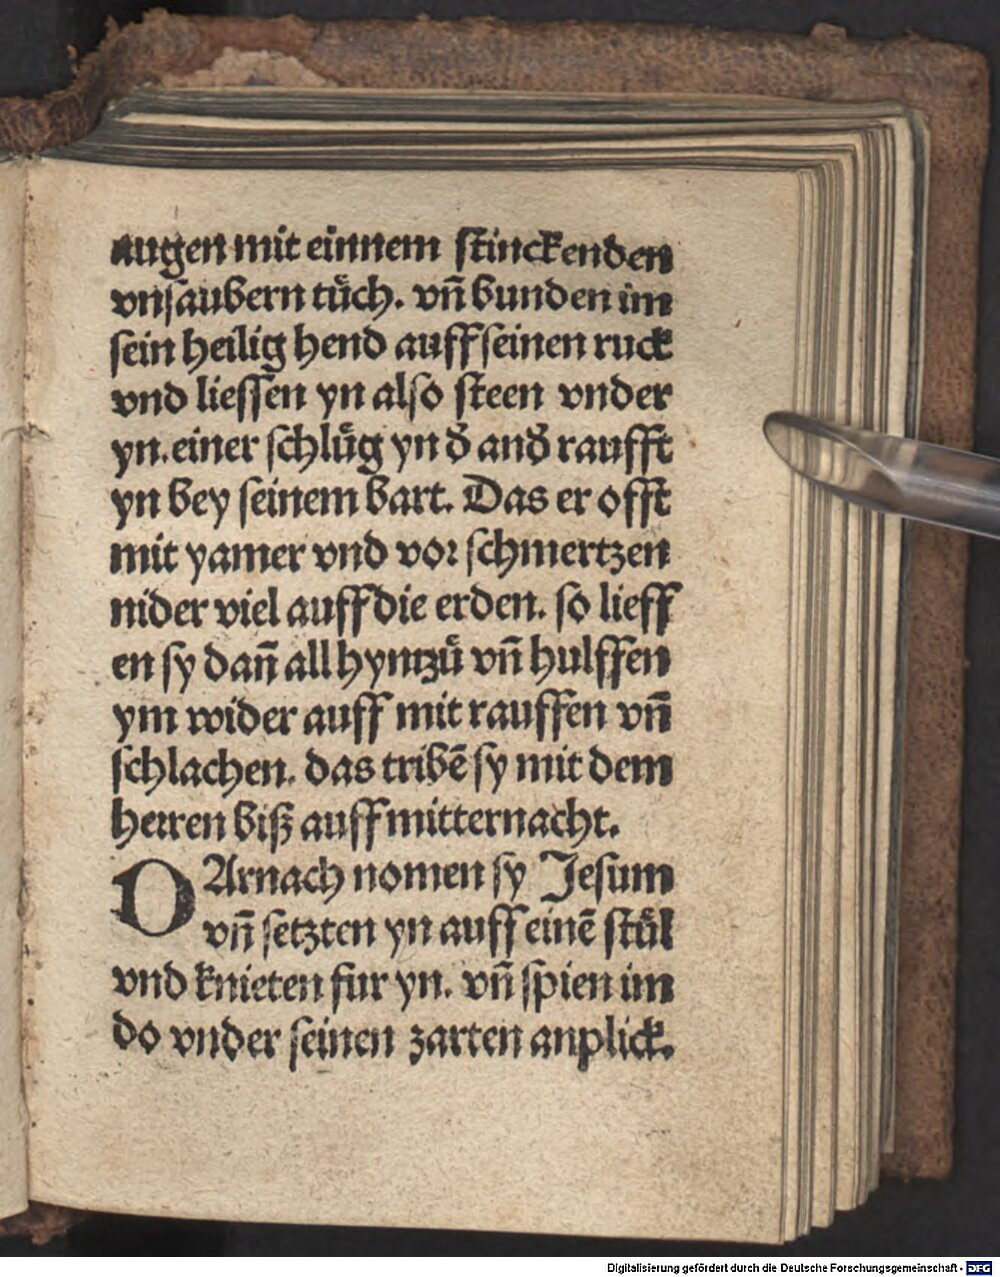 augen mit einnem stinckenden
vnsaubern tuͤch. vn̄ bunden im
sein heilig hend auff seinen ruck
vnd liessen yn also steen vnder
yn. einer schluͤg yn d᷑ and᷑ raufft
yn bey seinem bart. Das er offt
mit yamer vnd vor schmertzen
nider viel auff die erden. so lieff
en sy dan̄ all hyntzuͤ vn̄ hulffen
ym wider auff mit rauffen vn̄
schlachen. das tribē sy mit dem
herren biß auff mitternacht.
DArnach nomen sy Jesum
vn̄ setzten yn auff einē stuͤl
vnd knieten fur yn. vn̄ spien im
do vnder seinen zarten anplick.
Digitalisierung gefördert durch die Deutsche Forschungsgemeinschaft - DFG